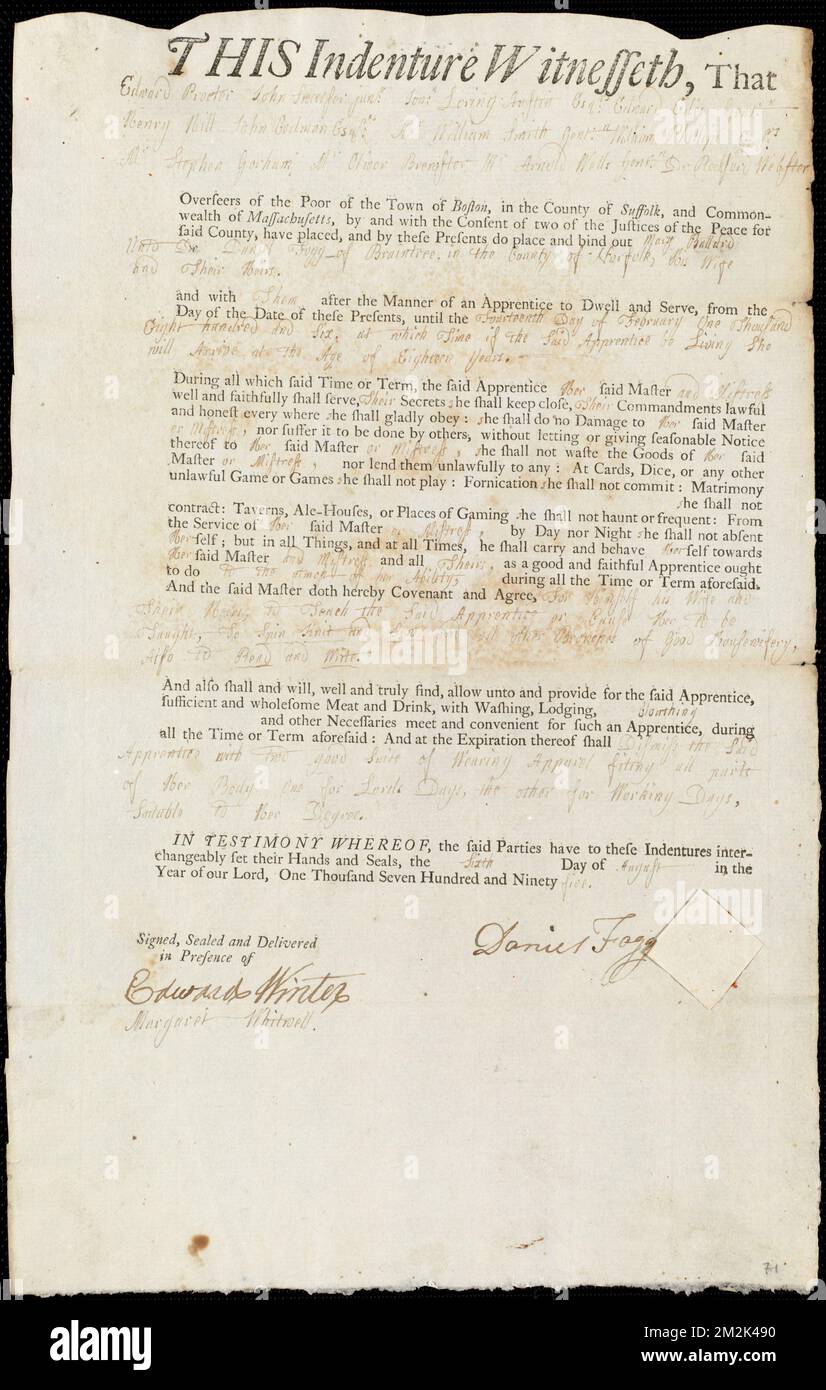 THIS Indenture Witnesseth, That
Edward Procter John Sweetser junr Jonn Loring Austin Esqrs Edward Edes
Henry Hill John Codman Esqrs Mr William Smith Gentn William
Mr Stephen Gorham Mr Oliver Brewster Mr Arnold Wells Gentn Dr Redford Webster
Overseers of the Poor of the Town of Boston, in the County of Suffolk, and Common-
wealth of Massachusetts, by and with the Consent of two of the Justices of the Peace for
said County, have placed, and by these Presents do place and bind out Mary Ballard
Unto Dr Daniel Fogg of Braintree in the County of Norfolk, his Wife
and Their Heirs.
and with Them after the Manner of an Apprentice to Dwell and Serve, from the
Day of the Date of these Presents, until the Fourteenth Day of February One Thousand
Eight hundred and Six, at which Time if the Said Apprentice be Living She
will Arrive at the Age of Eighteen Years.
During all which said Time or Term, the said Apprentice Her said Master and Mistress
well and faithfully shall serve, Their Secrets she shall keep close, Their Commandments lawful
and honest every where she shall gladly obey: she shall do no Damage to Her said Master
or Mistress, nor suffer it to be done by others, without letting or giving seasonable Notice
thereof to Her said Master or Mistress, she shall not waste the Goods of Her said
Master or Mistress, nor lend them unlawfully to any: At Cards, Dice, or any other
unlawful Game or Games she shall not play: Fornication she shall not commit: Matrimony
she shall not
contract: Taverns, Ale-Houses, or Places of Gaming she shall not haunt or frequent: From
the Service of Her said Master or Mistress, by Day nor Night she shall not absent
Herself; but in all Things, and at all Times, he shall carry and behave Herself towards
Her said Master and Mistress and all Theirs, as a good and faithful Apprentice ought
to do to the utmost of her Ability, during all the Time or Term aforesaid.
And the said Master doth hereby Covenant and Agree, For Himself his Wife and
Their Heirs, to Teach the Said Apprentice or Cause Her to be
Taught, To Spin Knit and Sew all other Branches of Good Housewifery,
Also to Read and Write.
And also shall and will, well and truly find, allow unto and provide for the said Apprentice,
sufficient and wholesome Meat and Drink, with Washing, Lodging, Cloathing
and other Necessaries meet and convenient for such an Apprentice, during
all the Time or Term aforesaid: And at the Expiration thereof shall Dismiss the Said
Apprentice with two good Suits of Wearing Apparel fitting all parts
of Her Body One for Lords Days, the other for Working Days,
Suitable to Her Degree.
IN TESTIMONY WHEREOF, the said Parties have to these Indentures inter-
changeably set their Hands and Seals, the Sixth Day of August in the
Year of our Lord, One Thousand Seven Hundred and Ninety five.
Signed, Sealed and Delivered
in Presence of
Daniel Fogg
Edwards Winter
Margaret Whitwell.
71
alamy
Image ID: 2M2K490
www.alamy.com